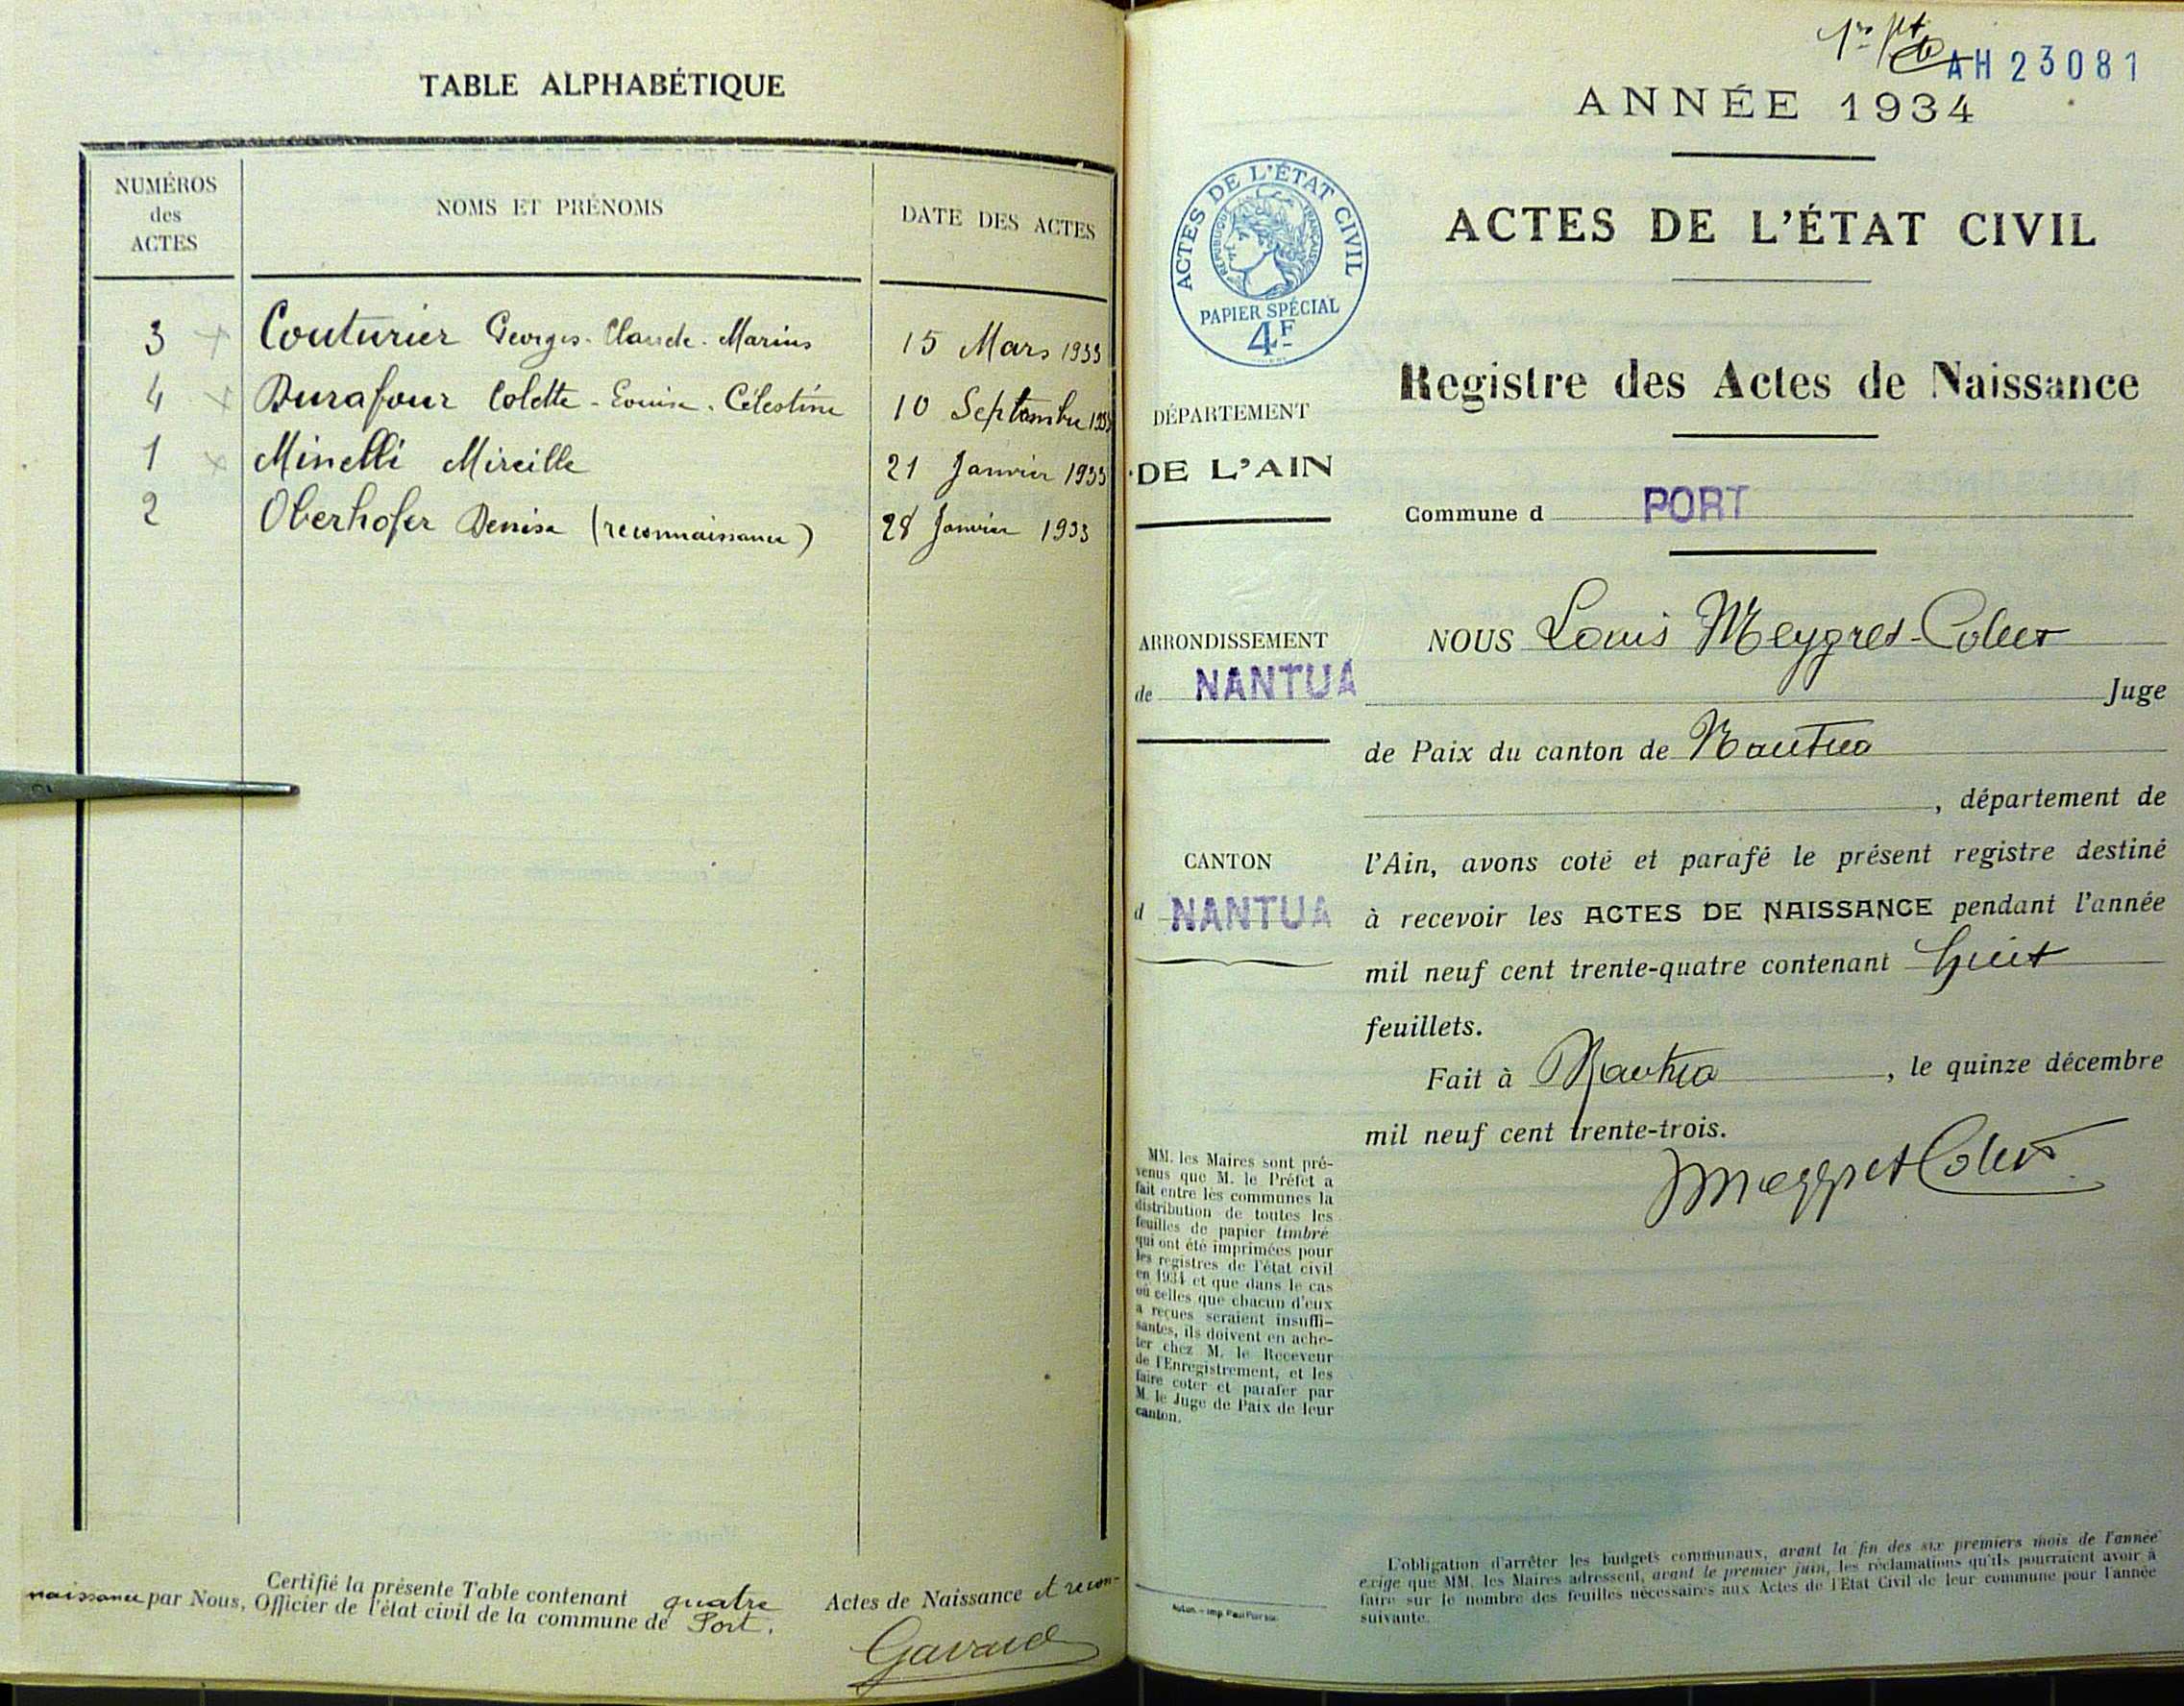 TABLE ALPHABÉTIQUE
NUMÉROS
des
ACTES
NOMS ET PRÉNOMS
DATE DES ACTES
3 Couturier Georges-Claude-Marius 15 Mars 1933
4 Durafour Colette-Louise-Célestine 10 Septembre 1933
1 Minelli Mireille 21 Janvier 1933
2 Oberhofer Denise (reconnaissance) 28 Janvier 1933
Certifié la présente Table contenant quatre Actes de Naissance et recon-
naissance par Nous, Officier de l'état civil de la commune de Port.
Gavard
AH 23081
ANNÉE 1934
ACTES DE L'ÉTAT CIVIL
RÉPUBLIQUE FRANÇAISE
PAPIER SPÉCIAL
4F
DÉPARTEMENT
DE L'AIN
ARRONDISSEMENT
de NANTUA
CANTON
d NANTUA
MM. les Maires sont pré-
venus que M. le Préfet a
fait entre les communes la
distribution de toutes les
feuilles de papier timbré
qui ont été imprimées pour
les registres de l'état civil
en 1934 et que dans le cas
où celles que chacun d'eux
a reçues seraient insuffi-
santes, ils doivent en ache-
ter chez M. le Receveur
de l'Enregistrement, et les
faire coter et parafer par
M. le Juge de Paix de leur
canton.
ACTES DE L'ÉTAT CIVIL
Registre des Actes de Naissance
Commune d PORT
NOUS Louis Meygret-Collet
Juge
de Paix du canton de Nantua
, département de
l'Ain, avons coté et parafé le présent registre destiné
à recevoir les ACTES DE NAISSANCE pendant l'année
mil neuf cent trente-quatre contenant huit
feuillets.
Fait à Nantua, le quinze décembre
mil neuf cent trente-trois.
Meygret Collet
L'obligation d'arrêter les budgets communaux, avant la fin des six premiers mois de l'année
exige que MM. les Maires adressent, avant le premier juin, les réclamations qu'ils pourraient avoir à
faire sur le nombre des feuilles nécessaires aux Actes de l'Etat Civil de leur commune pour l'année
suivante.